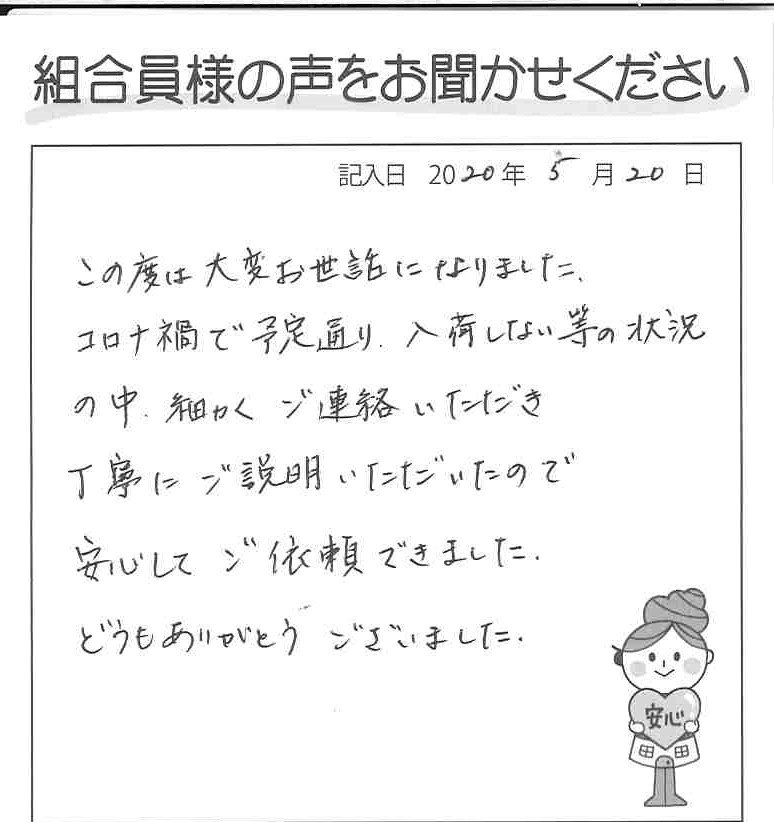 組合員様の声をお聞かせください
記入日 2020年 5月20日
この度は大変お世話になりました。
コロナ禍で予定通り、入荷しない等の状況
の中、細かく ご連絡いただき
丁寧に ご説明いただいたので
安心して ご依頼できました。
どうもありがとう ございました。
安心